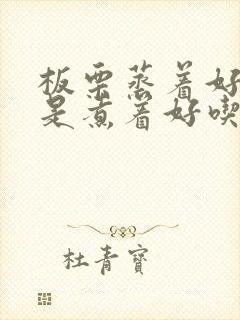 板栗蒸着好
是煮着好喫
杜青寶